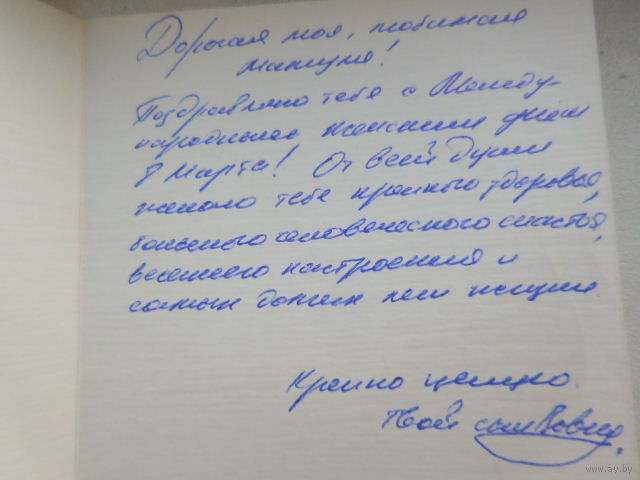 Дорогая моя, любимая
мамуля!
Поздравляю тебя с Между-
народным женским днём
8 Марта! От всей души
желаю тебе крепкого здоровья,
большого человеческого счастья,
весеннего настроения и
самых долгих лет жизни
Крепко целую.
Твой сын Вовка.
www.ay.by